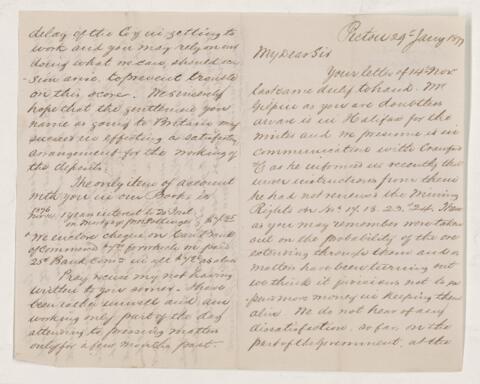 Pictou 29th Jany 1877
My Dear Sir
Your letter of 14th Nov
last came duly to hand. Mr
Gilpin as you are doubtless
aware is in Halifax for the
winter and we presume is in
communication with Crawford
& Co as he informed us recently that
under instructions from them
he had not renewed the Mining
Rights on No 17. 18. 23. & 24. These
as you may remember were taken
out on the probability of the ore
extending through them and as
matters have been turning out
we think it judicious not to
pay more money in keeping them
alive. We do not hear of any
dissatisfaction, so far, on the
part of the Government, at the
delay of the Coy in getting to
work and you may rely on our
doing what we can, should oc-
casion arise, to prevent trouble
on this score. We sincerely
hope that the gentlemen you
name as going to Britain may
succeed in effecting a satisfactory
arrangement for the working of
the deposits.
The only item of account
with you in our Books is
1876
Nov. 1 year interest to 20 Inst
on Mortgage
& We enclose cheque on Can. Bank
of Commerce for which we paid
25c Bank Comn in all as above
Pray excuse my not having
written to you sooner. I have
been rather unwell and am
working only part of the day
attending to pressing matters
only for a few months past.